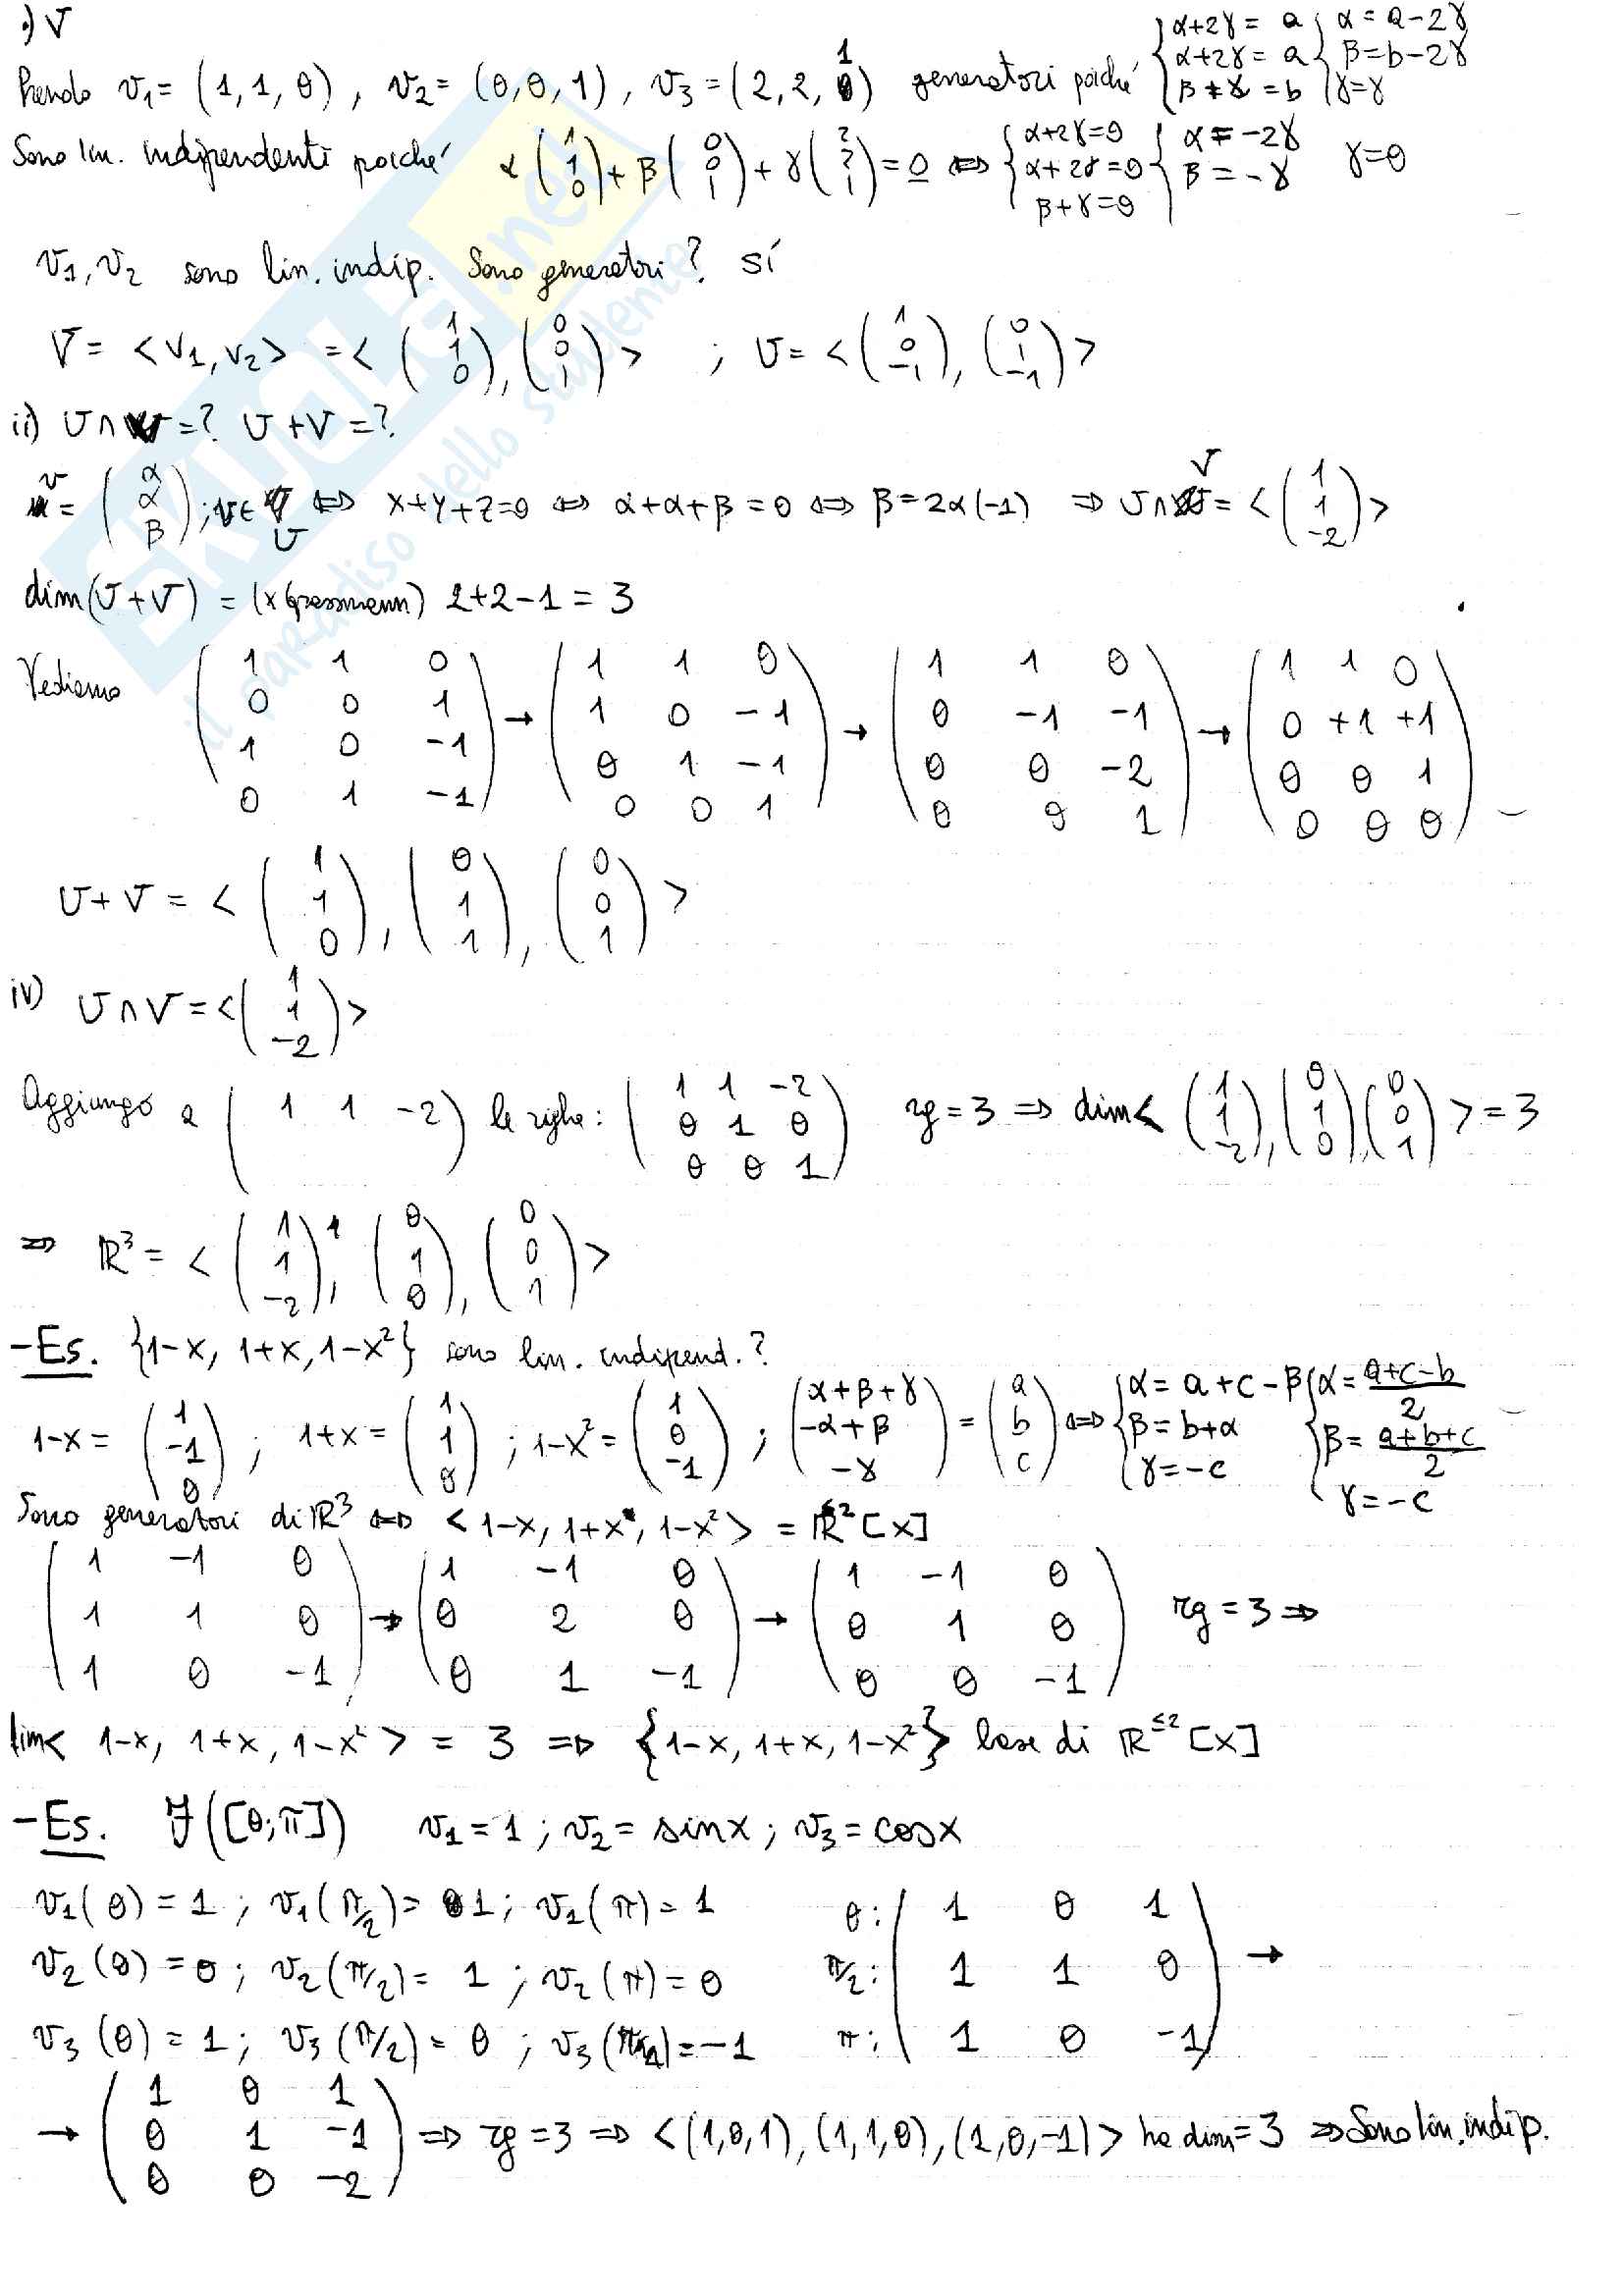 •) V
Prendo v₁ = (1, 1, 0), v₂ = (0, 0, 1), v₃ = (2, 2, 1) generatori poiché { α+2γ = a ; α+2γ = a ; β+γ = b { α = a-2γ ; β = b-2γ ; γ=γ
Sono lin. indipendenti poiché α (1 1 0) + β (0 0 1) + γ (2 2 1) = 0 ⇔ { α+2γ=0 ; α+2γ=0 ; β+γ=0 { α = -2γ ; β = -γ γ=0
v₁, v₂ sono lin. indip. Sono generatori? sí
V = <v₁, v₂> = < (1 1 0), (0 0 1) > ; U = < (1 0 -1), (0 1 -1) >
ii) U∩V = ? U+V = ?
v = (α α β); v∈U ⇔ x+y+z=0 ⇔ α+α+β=0 ⇔ β=2α(-1) ⇒ U∩V = < (1 1 -2) >
dim(U+V) = (x Grassmann) 2+2-1 = 3
Vediamo (1 1 0 ; 0 0 1 ; 1 0 -1 ; 0 1 -1) → (1 1 0 ; 1 0 -1 ; 0 1 -1 ; 0 0 1) → (1 1 0 ; 0 -1 -1 ; 0 0 -2 ; 0 0 1) → (1 1 0 ; 0 +1 +1 ; 0 0 1 ; 0 0 0)
U+V = < (1 1 0), (0 1 1), (0 0 1) >
iv) U∩V = < (1 1 -2) >
Aggiungo a (1 1 -2) le righe: (1 1 -2 ; 0 1 0 ; 0 0 1) rg = 3 ⇒ dim< (1 1 -2), (0 1 0), (0 0 1) > = 3
⇒ ℝ³ = < (1 1 -2), (0 1 0), (0 0 1) >
-Es. {1-x, 1+x, 1-x²} sono lin. indipend.?
1-x = (1 -1 0); 1+x = (1 1 0); 1-x² = (1 0 -1); (α+β+γ ; -α+β ; -γ) = (a b c) ⇔ { α = a+c-β ; β = b+α ; γ = -c { α = (a+c-b)/2 ; β = (a+b+c)/2 ; γ = -c
Sono generatori di ℝ³ ⇔ <1-x, 1+x, 1-x²> = ℝ^≤2[x]
(1 -1 0 ; 1 1 0 ; 1 0 -1) → (1 -1 0 ; 0 2 0 ; 0 1 -1) → (1 -1 0 ; 0 1 0 ; 0 0 -1) rg = 3 ⇒
dim< 1-x, 1+x, 1-x² > = 3 ⇒ {1-x, 1+x, 1-x²} base di ℝ^≤2[x]
-Es. F([0;π]) v₁ = 1; v₂ = sinx; v₃ = cosx
v₁(0) = 1; v₁(π/2) = 1; v₁(π) = 1 0: (1 0 1
v₂(0) = 0; v₂(π/2) = 1; v₂(π) = 0 π/2: 1 1 0 →
v₃(0) = 1; v₃(π/2) = 0; v₃(π) = -1 π: 1 0 -1)
→ (1 0 1 ; 0 1 -1 ; 0 0 -2) ⇒ rg = 3 ⇒ <(1,0,1), (1,1,0), (1,0,-1)> ha dim = 3 ⇒ Sono lin. indip.
SKUOLA.net
il paradiso dello studente